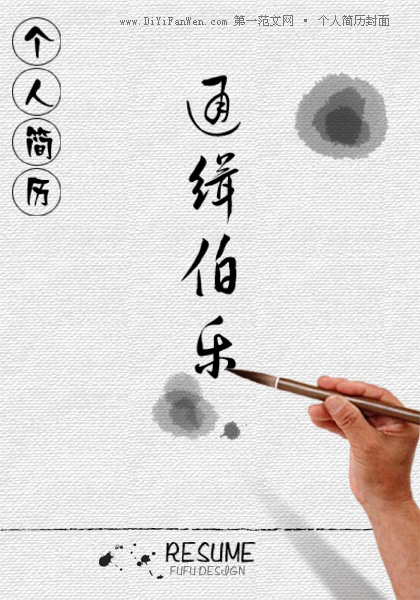 www.DiYiFanWen.com 第一范文网 · 个人简历封面
个
人
简
历
通
缉
伯
乐
RESUME
FUFU DESIGN